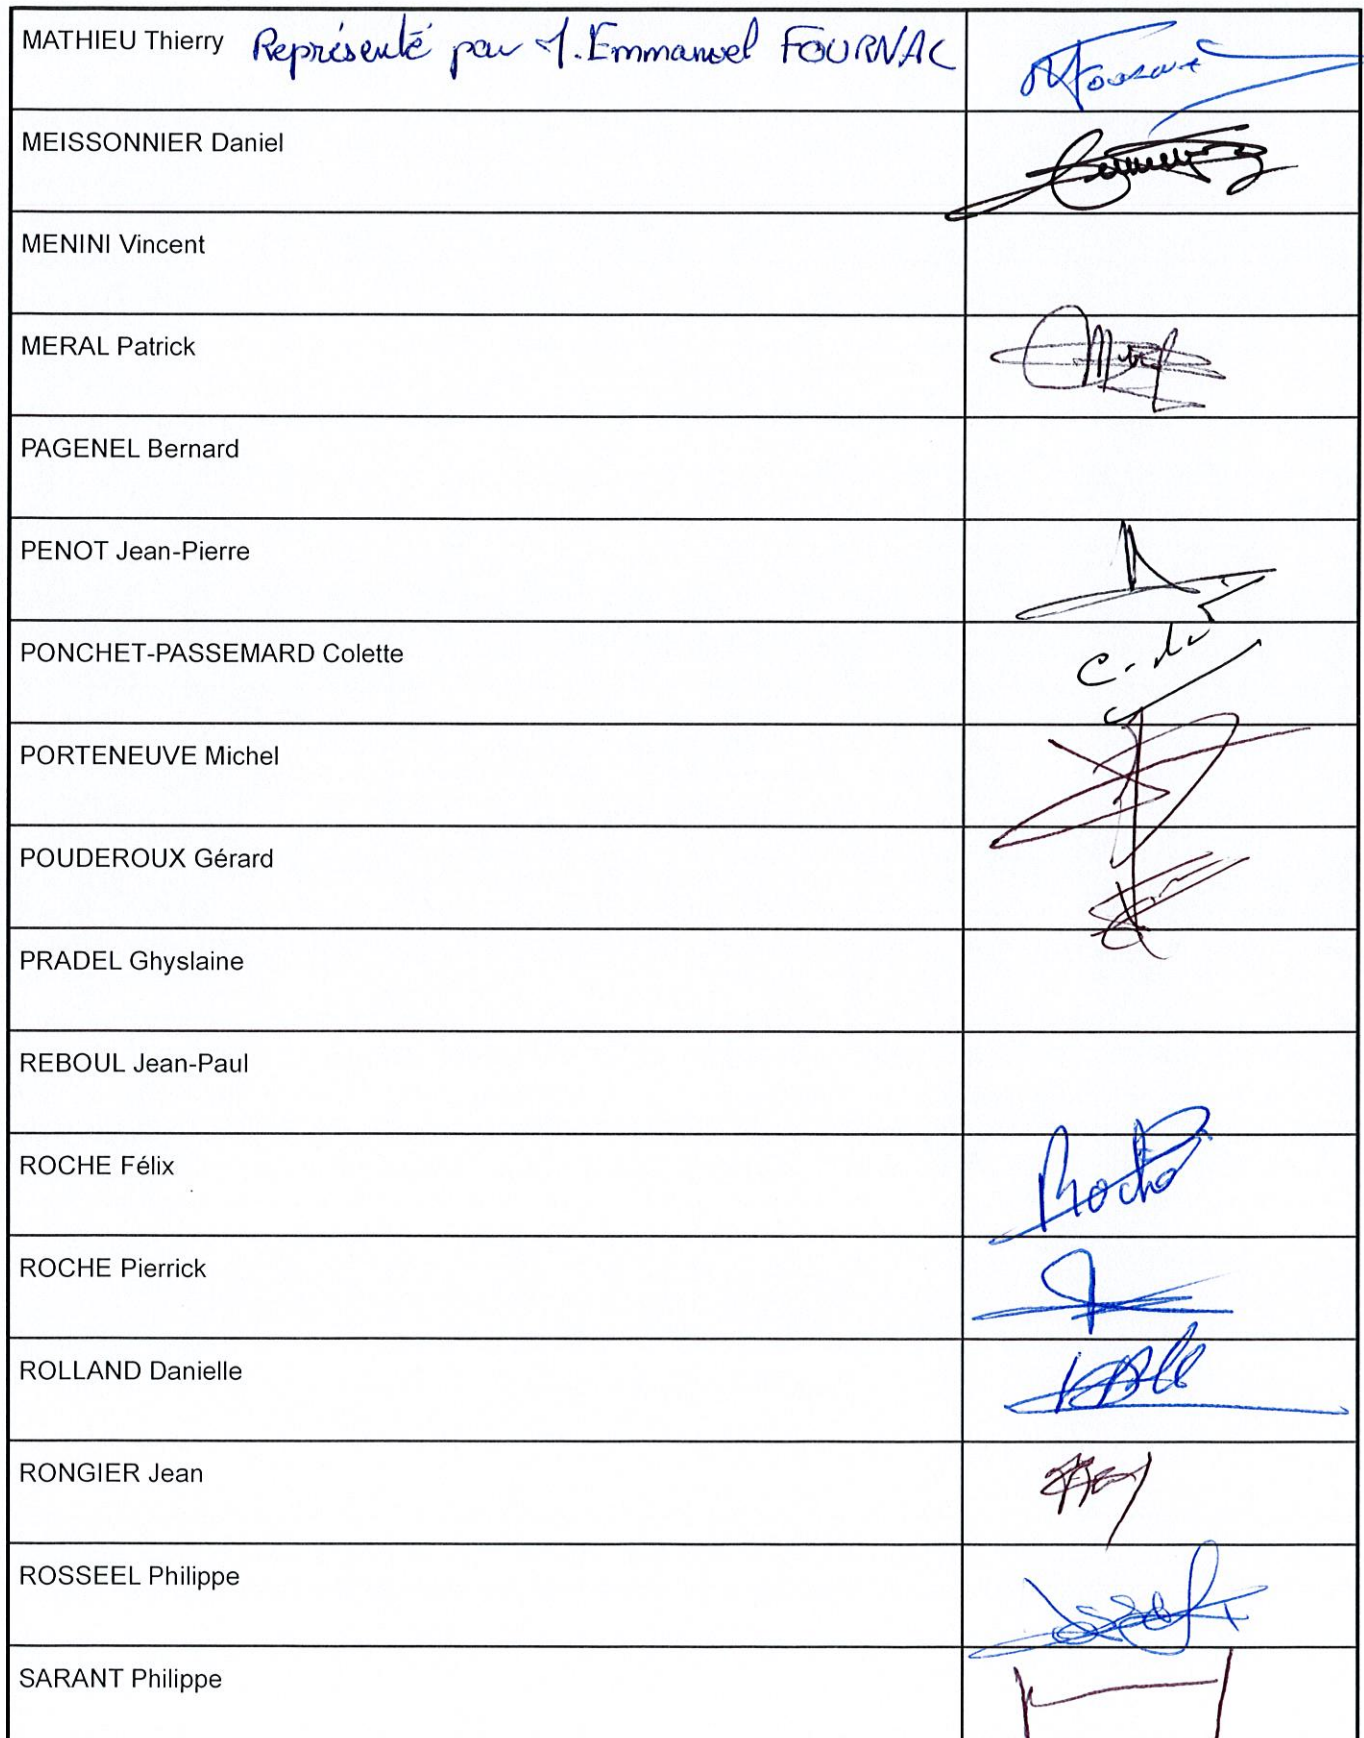 MATHIEU Thierry Représenté par M. Emmanuel FOURNAC
MEISSONNIER Daniel
MENINI Vincent
MERAL Patrick
PAGENEL Bernard
PENOT Jean-Pierre
PONCHET-PASSEMARD Colette
PORTENEUVE Michel
POUDEROUX Gérard
PRADEL Ghyslaine
REBOUL Jean-Paul
ROCHE Félix
ROCHE Pierrick
ROLLAND Danielle
RONGIER Jean
ROSSEEL Philippe
SARANT Philippe